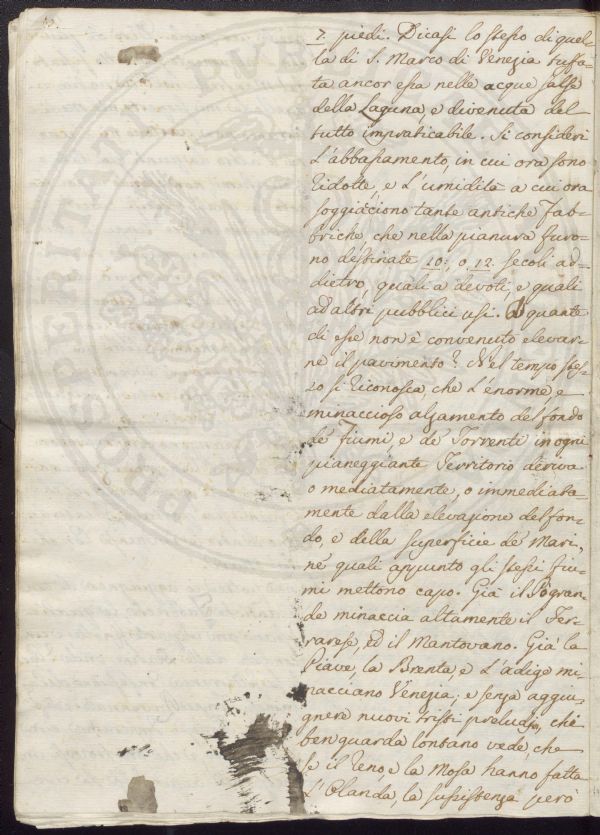 7. piedi. Dicasi lo stesso di quel-
la di S. Marco di Venezia tuffa-
ta ancor essa nelle acque salse
della Laguna, e divenuta del
tutto impraticabile. Si consideri
l'abbassamento, in cui ora sono
ridotte, e l'umidità a cui ora
soggiaciono tante antiche Fab-
briche che nella pianura furo-
no destinate 10:, o 12. secoli ad-
dietro, quali a devoti, e quali
ad altri pubblici usi. A quante
di esse non è convenuto elevar-
ne il pavimento? Nel tempo stes-
so si riconosca, che l'enorme e
minaccioso alzamento del fondo
de' Fiumi, e de' Torrenti in ogni
pianeggiante Territorio deriva
o mediatamente, o immediata-
mente dalla elevazione del fon-
do, e della superficie de' Mari,
ne' quali appunto gli stessi fiu-
mi mettono capo. Già il Pogran-
de minaccia altamente il Fer-
rarese, ed il Mantovano. Già la
Piave, la Brenta, e l'Adige mi-
nacciano Venezia; e senza aggiu-
gnere nuovi tristi preludj, chi
ben guarda lontano vede, che
se il Reno, e la Mosa hanno fatta
l'Olanda, la sussistenza però
PROSPERITATI PUBLICAE